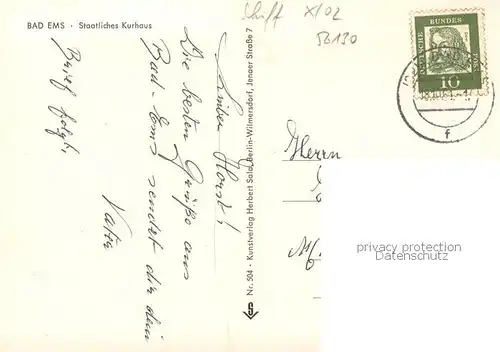 BAD EMS · Staatliches Kurhaus
Schiff XI02
56130
Lieber Horst!
Die besten Grüße aus
Bad-Ems sendet dir dein
Vater
Brief folgt,
Nr. 504 · Kunstverlag Herbert Sala, Berlin-Wilmersdorf, Jenaer Straße 7
DEUTSCHE
BUNDES
POST
10
f
Herrn
privacy protection
Datenschutz